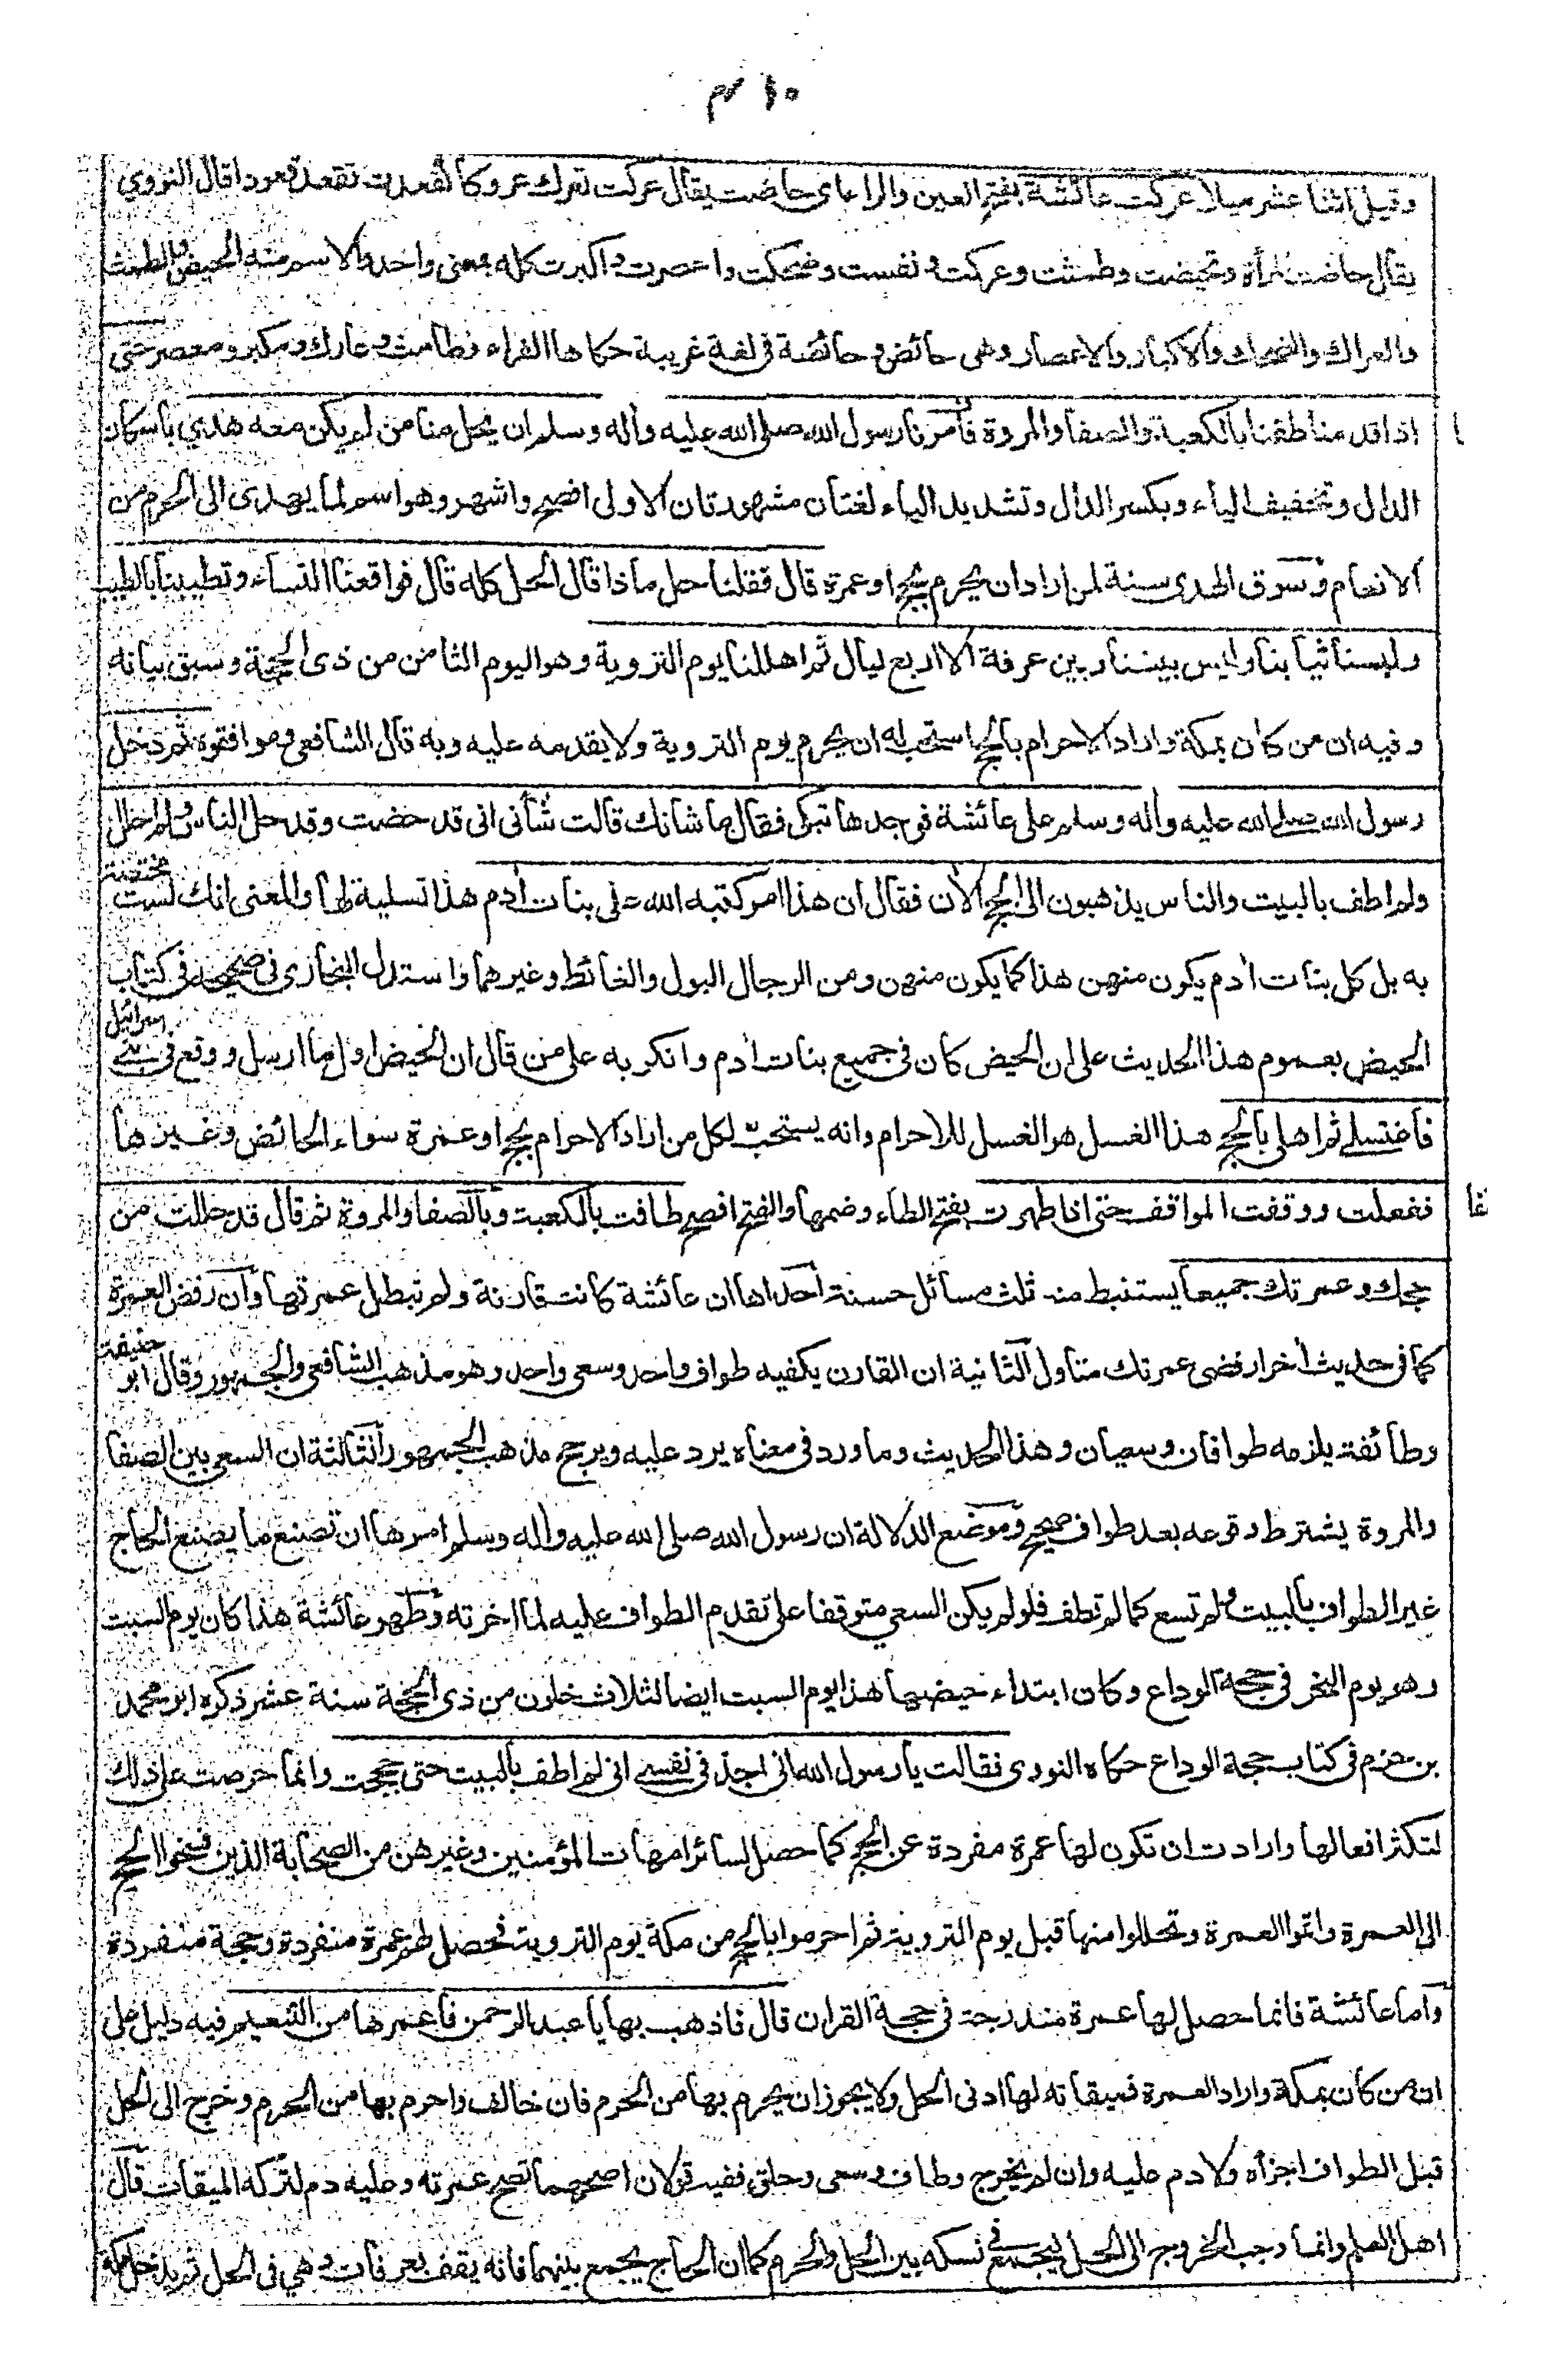 ٤١٠
وقيل اثنا عشر ميلا عركت عائشة بفتح العين والراء اى حاضت يقال عركت تعرك عروكا كقعدت تقعد قعودا قال النووي
يقال حاضت المرأة وتحيضت وطمثت وعركت ونفست وضحكت واعصرت واكبرت كله بمعنى واحد والاسم منه الحيض والطمث
والعراك والضحك والاكبار والاعصار وهى حائض وحائضة فى لغة غريبة حكاها الفراء وطامث وعارك ومكبر ومعصر حتى
اذا قدمنا طفنا بالكعبة والصفا والمروة فأمرنا رسول الله صلى الله عليه وأله وسلم ان يحل منا من لم يكن معه هدي باسكان
الدال وتخفيف الياء وبكسر الدال وتشديد الياء لغتان مشهورتان الاولى افصح واشهر وهو اسم لما يهدى الى الحرم من
الانعام وسوق الهدى سنة لمن اراد ان يحرم بحج او عمرة قال فقلنا حل ماذا قال الحل كله قال فواقعنا النساء وتطيبنا بالطيب
ولبسنا ثيابنا وليس بيننا وبين عرفة الا اربع ليال ثم اهللنا يوم التروية وهو اليوم الثامن من ذى الحجة وسبق بيانه
وفيه ان من كان بمكة واراد الاحرام بالحج استحب له ان يحرم يوم التروية ولا يقدمه عليه وبه قال الشافعى وموافقوه ثم دخل
رسول الله صلى الله عليه وأله وسلم على عائشة فوجدها تبكى فقال ما شانك قالت شأنى انى قد حضت وقد حل الناس ولم احلل
ولم اطف بالبيت والناس يذهبون الى الحج الأن فقال ان هذا امر كتبه الله على بنات أدم هذا تسلية لها والمعنى انك لست مختصة
به بل كل بنات أدم يكون منهن هذا كما يكون منهن ومن الرجال البول والغائط وغيرهما واستدل البخارى فى صحيحه فى كتاب
الحيض بعموم هذا الحديث على ان الحيض كان فى جميع بنات أدم وانكر به على من قال ان الحيض اول ما ارسل ووقع فى بنى اسرائيل
فاغتسلى ثم اهلى بالحج هذا الغسل هو الغسل للاحرام وانه يستحب لكل من اراد الاحرام بحج او عمرة سواء الحائض وغيرها
ففعلت ووقفت المواقف حتى اذا طهرت بفتح الطاء وضمها والفتح افصح طافت بالكعبة وبالصفا والمروة ثم قال قد حللت من
حجك وعمرتك جميعا يستنبط منه ثلث مسائل حسنة احداها ان عائشة كانت قارنة ولم تبطل عمرتها وان رفض العمرة
كما فى حديث أخر ارفضى عمرتك متاول الثانية ان القارن يكفيه طواف واحد وسعى واحد وهو مذهب الشافعى والجمهور وقال ابو حنيفة
وطائفة يلزمه طوافان وسعيان وهذا الحديث وما ورد فى معناه يرد عليه ويرجح مذهب الجمهور الثالثة ان السعى بين الصفا
والمروة يشترط وقوعه بعد طواف صحيح وموضع الدلالة ان رسول الله صلى الله عليه وأله وسلم امرها ان تصنع ما يصنع الحاج
غير الطواف بالبيت ولم تسع كما لم تطف فلو لم يكن السعى متوقفا على تقدم الطواف عليه لما اخرته وطهر عائشة هذا كان يوم السبت
وهو يوم النحر فى حجة الوداع وكان ابتداء حيضها هذا يوم السبت ايضا لثلاث خلون من ذى الحجة سنة عشر ذكره ابو محمد
بن حزم فى كتاب حجة الوداع حكاه النووى فقالت يا رسول الله انى اجد فى نفسى انى لم اطف بالبيت حتى حججت وانما حرصت على ذلك
لتكثر افعالها وارادت ان تكون لها عمرة مفردة عن الحج كما حصل لسائر امهات المؤمنين وغيرهن من الصحابة الذين فسخوا الحج
الى العمرة واتموا العمرة وتحللوا منها قبل يوم التروية ثم احرموا بالحج من مكة يوم التروية فحصل لهم عمرة منفردة وحجة منفردة
واما عائشة فانما حصل لها عمرة مندرجة فى حجة القران قال فاذهب بها يا عبد الرحمن فاعمرها من التنعيم فيه دليل على
ان من كان بمكة واراد العمرة فميقاته لها ادنى الحل ولا يجوز ان يحرم بها من الحرم فان خالف واحرم بها من الحرم وخرج الى الحل
قبل الطواف اجزأه ولا دم عليه وان لم يخرج وطاف وسعى وحلق ففيه قولان اصحهما تصح عمرته وعليه دم لتركه الميقات قال
اهل العلم وانما وجب الخروج الى الحل ليجمع فى نسكه بين الحل والحرم كما ان الحاج يجمع بينهما فانه يقف بعرفات وهي فى الحل ثم يدخل مكة